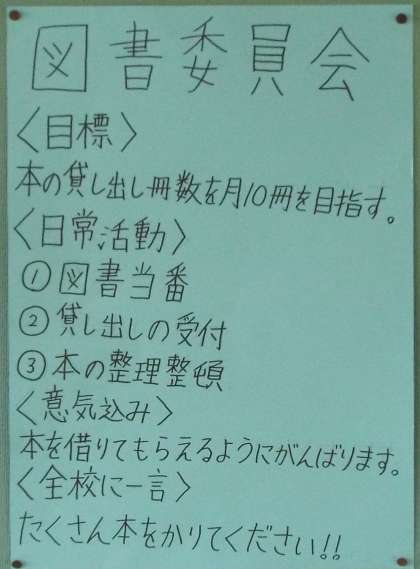 図書委員会
〈目標〉
本の貸し出し冊数を月10冊を目指す。
〈日常活動〉
①図書当番
②貸し出しの受付
③本の整理整頓
〈意気込み〉
本を借りてもらえるようにがんばります。
〈全校に一言〉
たくさん本をかりてください!!